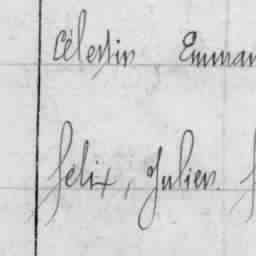 Célestin Emman
Félix, Julien.